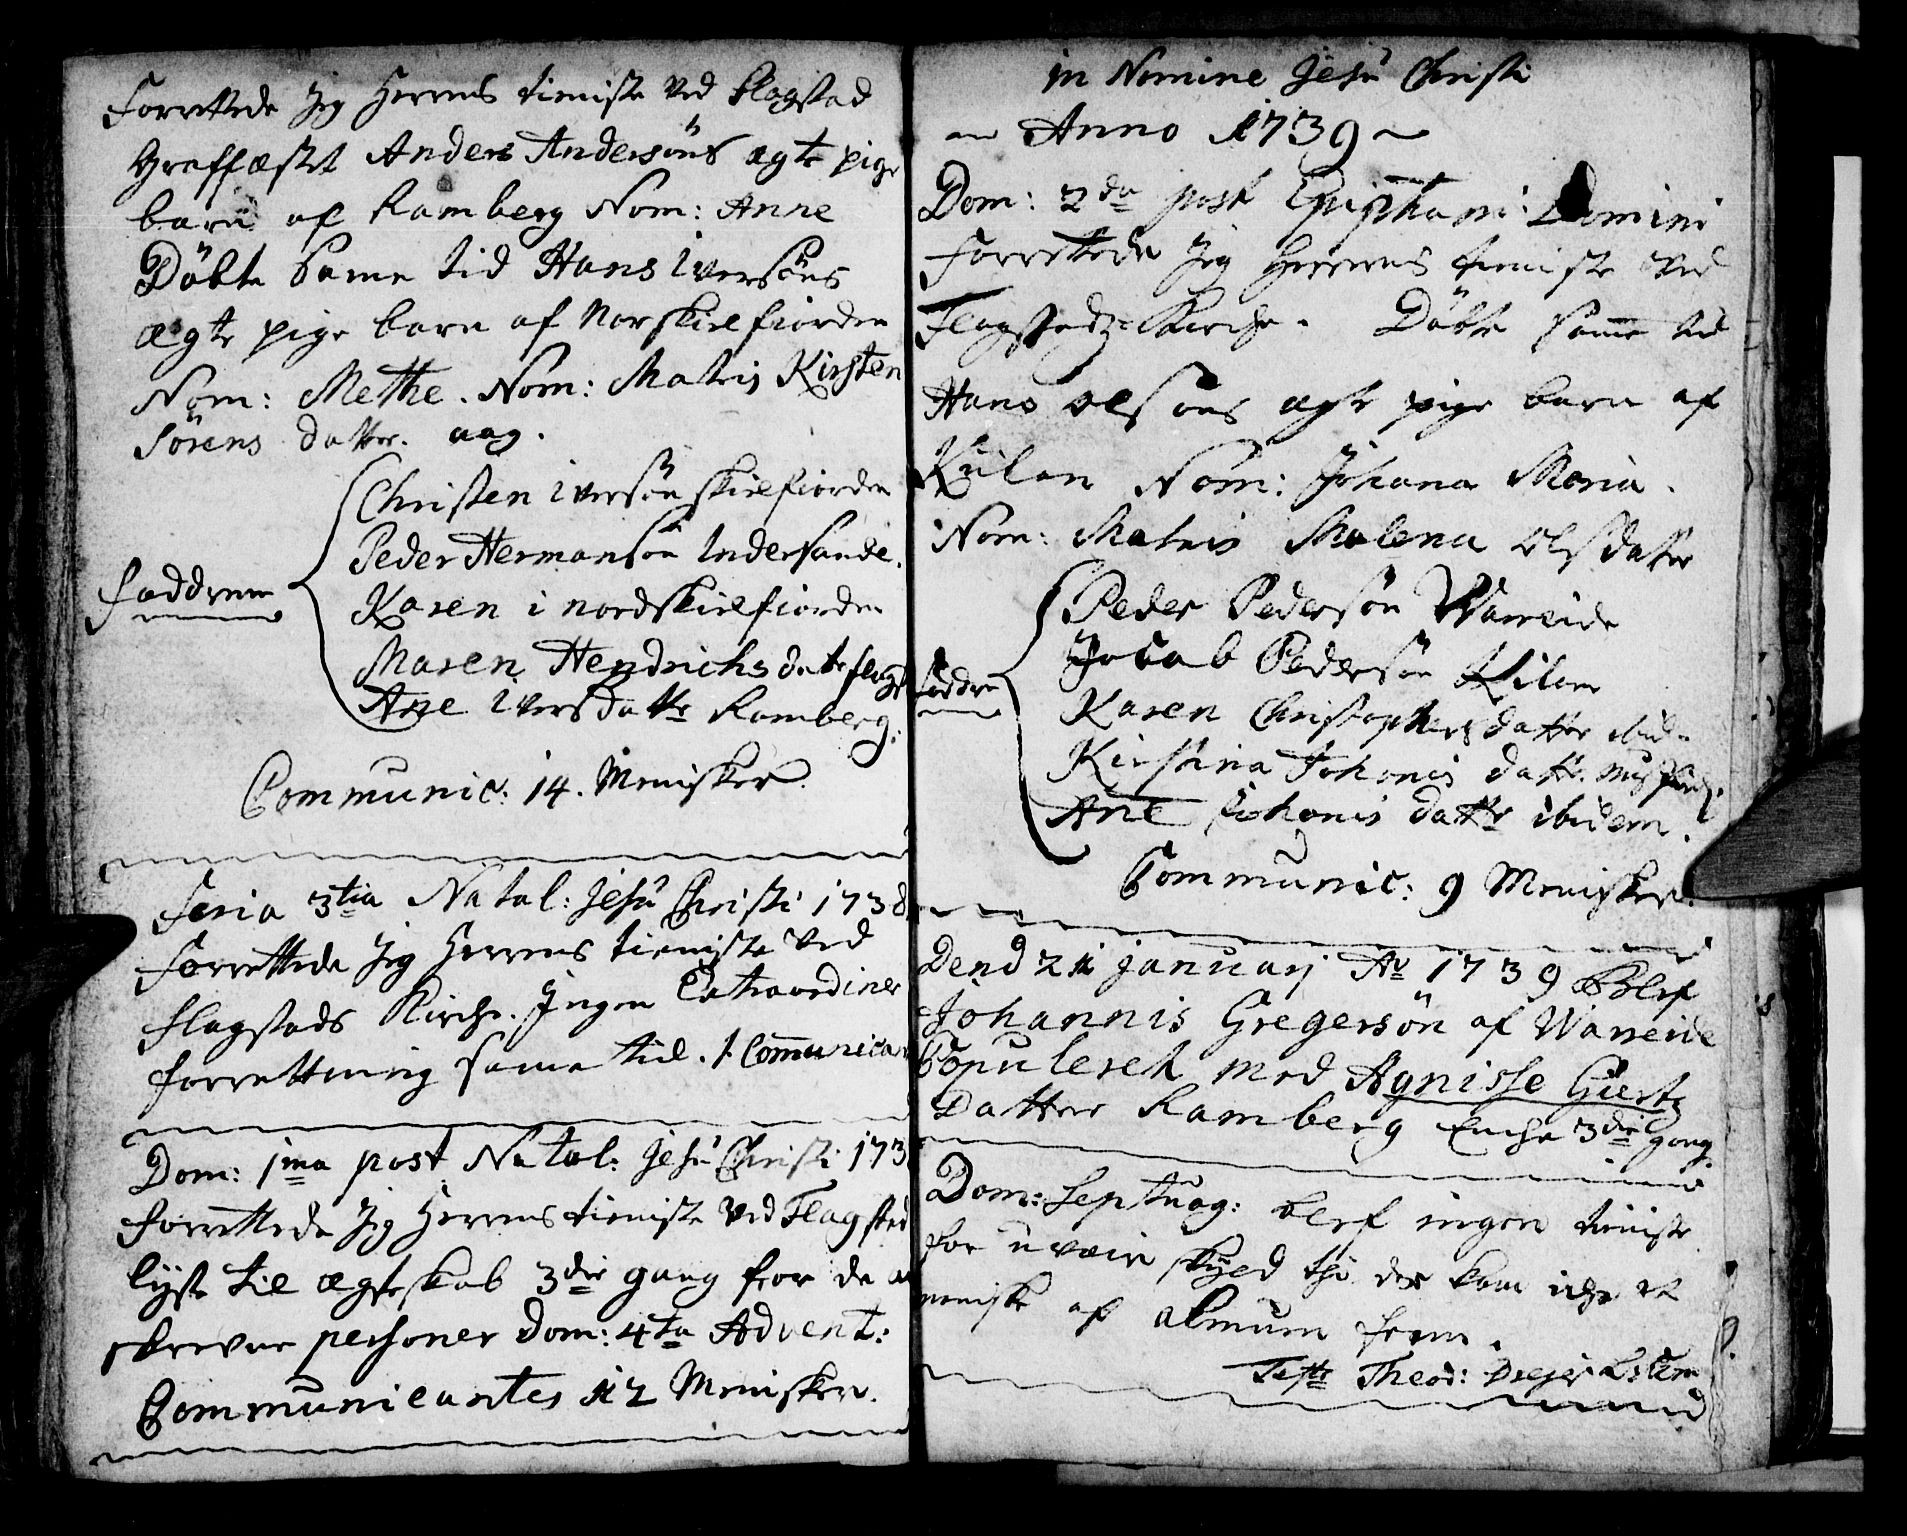 Forrettede Jeg Herrens tieniste ved Flagstad
Graffæstet Anders Andersöns ægte pige
barn af Ramberg Nom: Anne
Döbte Same tid Hans Iversöns
ægte pige barn af Norskielfiorden
Nom: Methe. Nom: Matris Kirsten
Sörens datter. aag.
Christen Iversön skielfiorden
Peder Hermansön Indersande.
Faddrene
Karen i nordskielfiorden
Maren Hendrichs datr flagst
Ane Iversdattr Ramberg.
Communic: 14. Menisker.
Feria 3tia Natal: Jesu Christi 1738
Forrettede Jeg Herrens tieniste ved
flagstads Kirche. Ingen Extraordiner
forrettning same tid. 1 Communicant
Dom: 1ma post Natal: Jesu Christi 173
Forrettede Jeg Herrens tieniste ved Flagsted
lyste til ægteskab 3die gang for de
skrevne personer Dom: 4ta Advent:
Communicantes 12 Menisker.
in Nomine Jesu Christi
Anno 1739
Dom: 2da post Epiphani: Domini
Forrettede Jeg Herrens tieniste ved
Flagstedz Kirche. Döbte same tid
Hans Olsöns ægte pige barn af
Kuilan Nom: Johana Maria.
Nom: Matris Malena Olsdatter
Peder Pedersön Wareide
Jacob Pedersön Kilan
Faddre
Karen Christophersdatter ibid
Kirstina Johanis datter
Ane Johanis dattr ibidem.
Communic: 9 Menisker.
Dend 21 januarj Ao 1739 Blef
Johannis Gregersön af Wareide
Copuleret med Agnisse Giertz
Datter Ramberg Enche 3die gang
Dom: Septuag: blef ingen tieniste
for uvær skyld thi der kom iche et
meniske af almuen frem.
Teste Theod: Dreyer Astrm